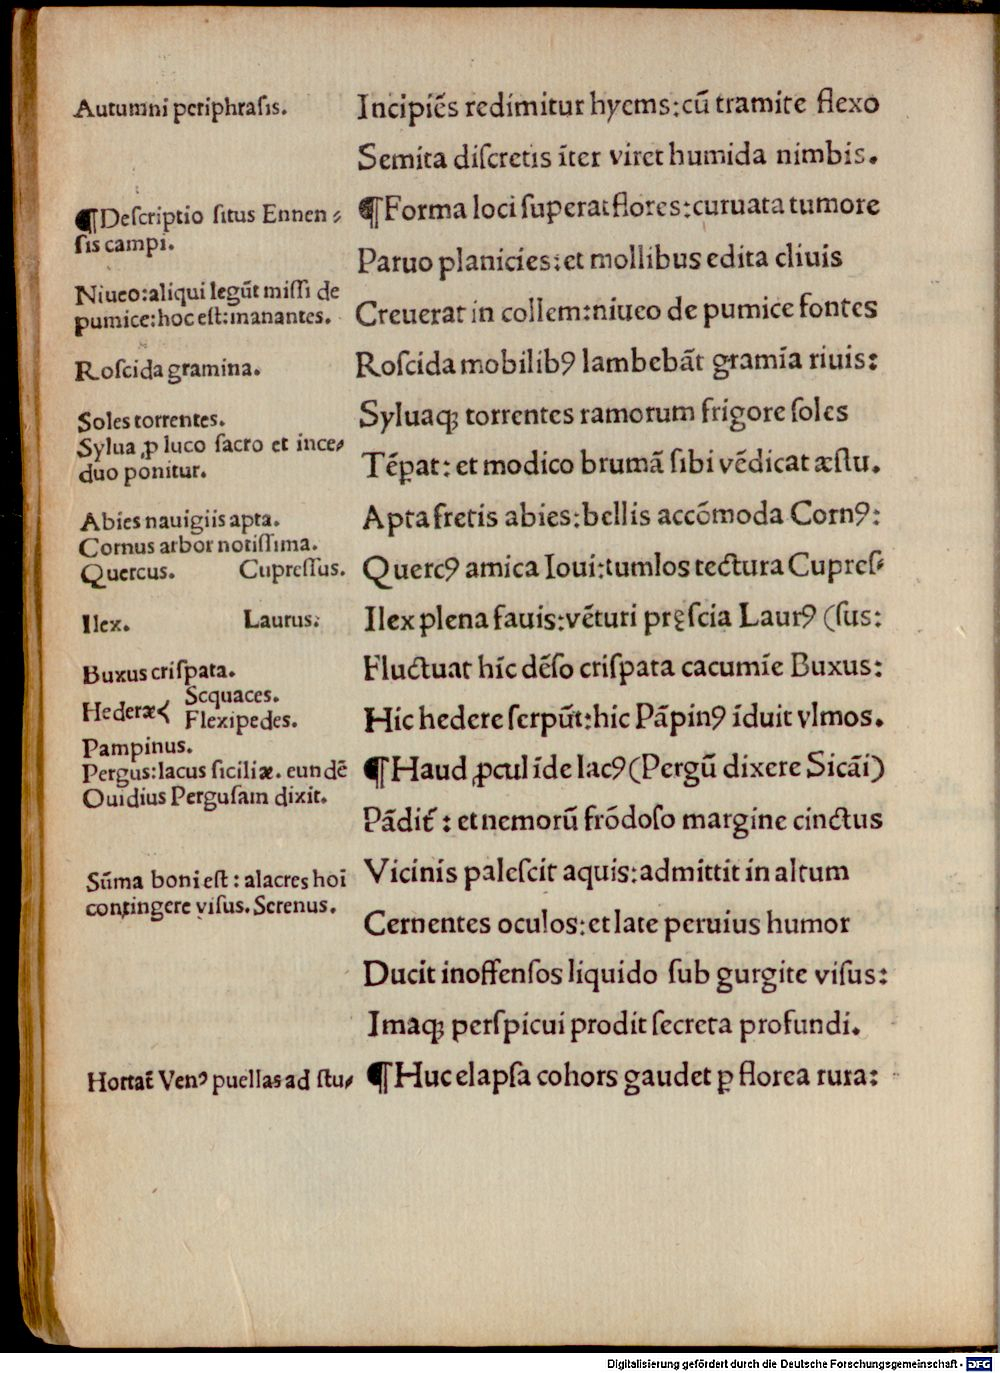 Autumni periphrasis.
Incipiẽs redimitur hyems:cũ tramite flexo
Semita discretis ĩter viret humida nimbis.
¶Descriptio situs Ennen⸗
sis campi.
¶Forma loci superat flores:curuata tumore
Paruo planicies:et mollibus edita cliuis
Niueo:aliqui legũt missi de
pumice:hoc est:manantes.
Creuerat in collem:niueo de pumice fontes
Roscida gramina.
Roscida mobilibꝰ lambebãt gramĩa riuis:
Soles torrentes.
Syluaqꝫ torrentes ramorum frigore soles
Sylua ꝓ luco sacro et ince⸗
duo ponitur.
Tẽꝑat: et modico brumã sibi vẽdicat æstu.
Abies nauigiis apta.
Apta fretis abies:bellis accõmoda Cornꝰ:
Cornus arbor notissima.
Quercus. Cupressus.
Quercꝰ amica Ioui:tumlos tectura Cupres⸗
Ilex. Laurus.
Ilex plena fauis:vẽturi pręscia Laurꝰ (sus:
Buxus crispata.
Fluctuat hĩc dẽso crispata cacumĩe Buxus:
Hederæ< Sequaces.
Flexipedes.
Hic hedere serpũt:hic Pãpinꝰ ĩduit vlmos.
Pampinus.
Pergus:lacus siciliæ. eundẽ
Ouidius Pergusam dixit.
¶Haud ꝓcul ĩde lacꝰ(Pergũ dixere Sicãi)
Pãdit̃: et nemorũ frõdoso margine cinctus
Sũma boni est: alacres hoĩ
contingere visus. Serenus.
Vicinis palescit aquis:admittit in altum
Cernentes oculos:et late peruius humor
Ducit inoffensos liquido sub gurgite visus:
Imaqꝫ perspicui prodit secreta profundi.
Hortat̃ Venꝰ puellas ad stu⸗
¶Huc elapsa cohors gaudet ꝑ florea rura:
Digitalisierung gefördert durch die Deutsche Forschungsgemeinschaft - DFG